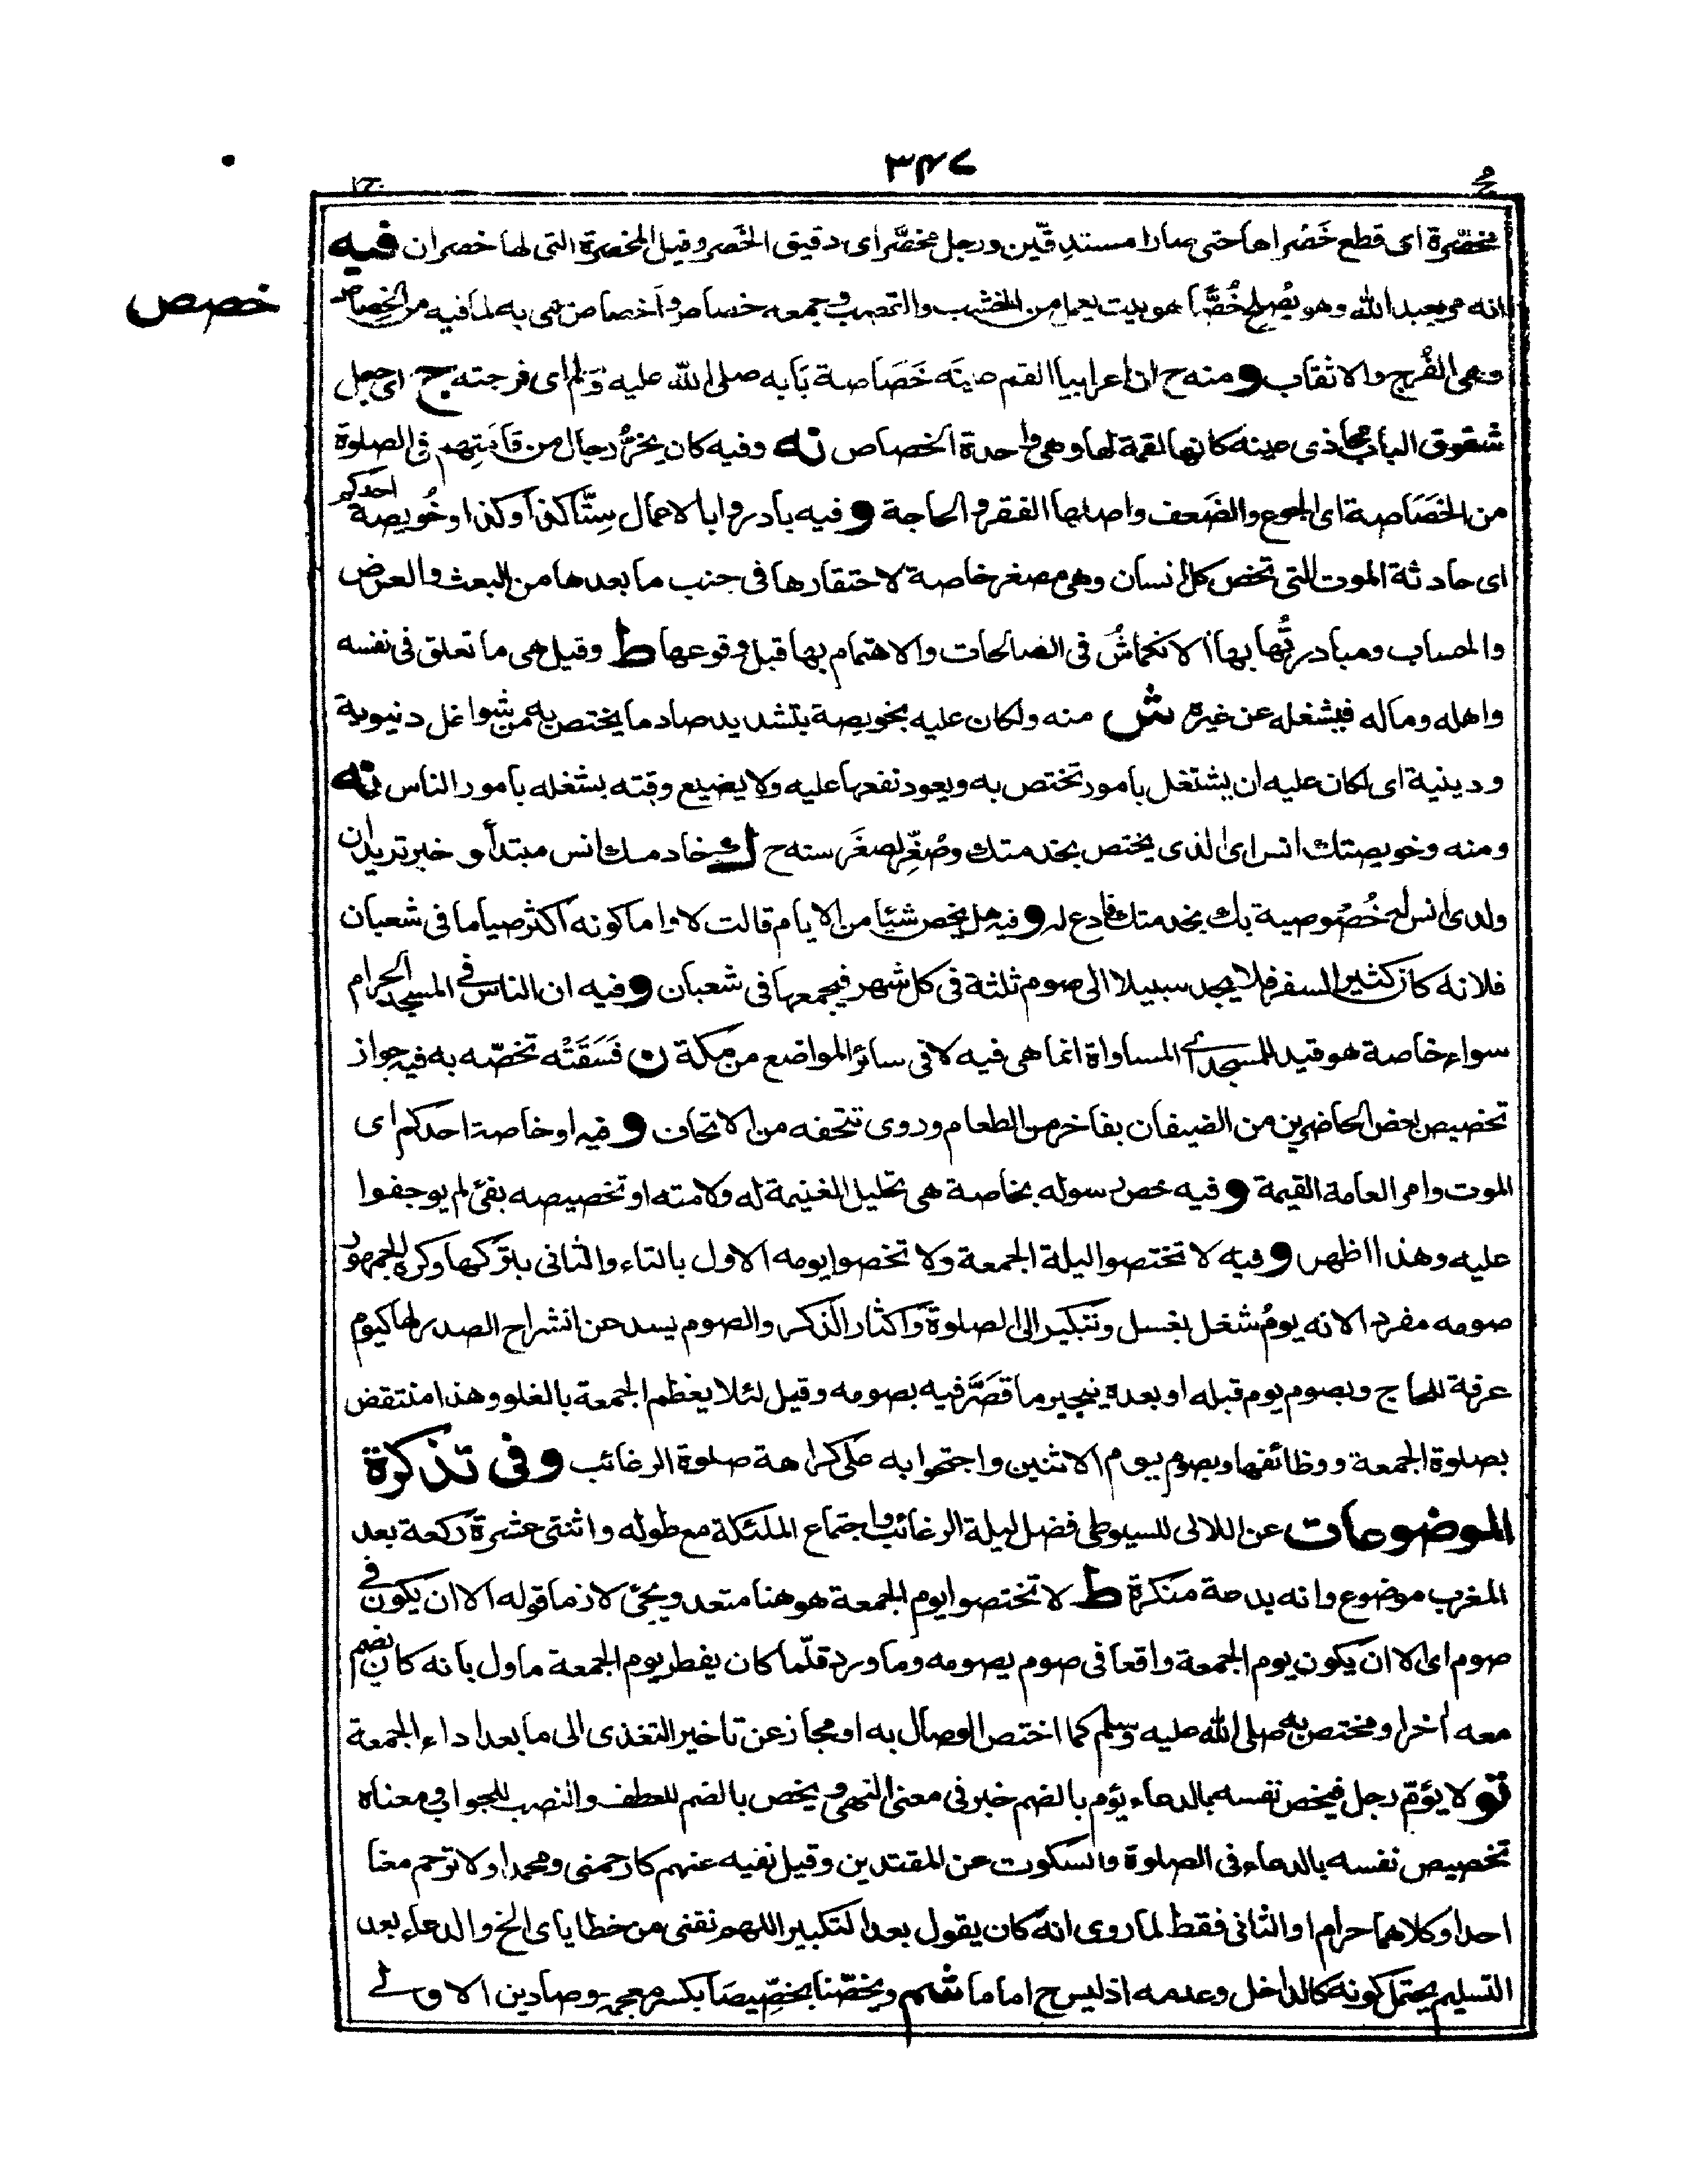 ٣٤٧
خصص
مخصّرة اى قطع خَصْراها حتى صارا مستدِقّين ورجل مخصَّر اى دقيق الخَصر وقيل المخصرة التى لها خصران فيه
انه مر بعبد الله وهو يُصلح خُصًّا هو بيت يعمل من الخشب والقصب وجمعه خصاص واخصاص سمى به لما فيه من الخصاص
وهى الفُرج والاثقاب و منه ح ان اعرابيا القم عينَه خَصَاصة بَابه صلى الله عليه وسلم اى فرجته ج اى جعل
شقوق الباب محاذى عينه كانها لقمة لها وهى واحدة الخصاص نه وفيه كان يخرُّ رجال من قامَتِهم فى الصلوة
من الخَصَاصة اى الجوع والضَعف واصلها الفقر والحاجة و فيه بادروا بالاعمال سِتًّا كذا وكذا وخُويصة احدكم
اى حادثة الموت التى تخص كل انسان وهى مصغر خاصة لاحتقارها فى جنب ما بعدها من البعث والعرض
والحساب ومبادرتُها بها الانكماشُ فى الصالحات والاهتمام بها قبل وقوعها ط وقيل هى ما تعلق فى نفسه
واهله وماله فيشغله عن غيره ش منه ولكان عليه بخويصة بتشديد صاد ما يختص به من شواغل دنيوية
ودينية اى لكان عليه ان يشتغل بامور تختص به ويعود نفعها عليه ولا يضيع وقته بشغله بامور الناس نه
ومنه وخويصتك انس اى الذى يختص بخدمتك وصُغِّر لصغَر سنه ح ك خادمك انس مبتدأ و خبر تريد ان
ولدى انس له خُصُوصية بك بخدمتك فادع له و فيه هل يخص شيئا من الايام قالت لا واما كونه اكثر صياما فى شعبان
فلانه كان كثير السفر فلا يجد سبيلا الى صوم ثلثة فى كل شهر فيجمعها فى شعبان و فيه ان الناس فى المسجد الحرام
سواء خاصة هو قيد للمسجد اى المساواة انما هى فيه لا فى سائر المواضع من مكة ن فَسَقَتْه تخصّه به فيه جواز
تخصيص بعض الحاضرين من الضيفان بفاخر من الطعام وروى تتحفه من الاتحاف و فيه او خاصة احدكم اى
الموت وامر العامة القيمة و فيه خص رسوله بخاصة هى تحليل الغنيمة له ولامته او تخصيصه بفئ لم يوجفوا
عليه وهذا اظهر و فيه لا تختصوا ليلة الجمعة ولا تخصوا يومه الاول بالتاء والثانى بتركها وكره الجمهور
صومه مفردا لانه يومُ شغل بغسل وتبكير الى الصلوة واكثار الذكر والصوم يسد عن انشراح الصدر لها كيوم
عرفة للحاج وبصوم يوم قبله او بعده ينجبر ما قصَّر فيه بصومه وقيل لئلا يعظم الجمعة بالغلو وهذا منتقض
بصلوة الجمعة ووظائفها وبصوم يوم الاثنين واحتجوا به على كراهة صلوة الرغائب وفى تذكرة
الموضوعات عن اللالى للسيوطى فضل ليلة الرغائب واجتماع الملئكة مع طوله واثنتى عشرة ركعة بعد
المغرب موضوع وانه بدعة منكرة ط لا تختصوا يوم الجمعة هو هنا متعد ويجئ لازما قوله الا ان يكون فى
صوم اى الا ان يكون يوم الجمعة واقعا فى صوم يصومه وما ورد قلّما كان يفطر يوم الجمعة ماول بانه كان يضم
معه اخر او مختص به صلى الله عليه وسلم كما اختص الوصال به او مجاز عن تاخير التغذى الى ما بعد اداء الجمعة
تو لا يؤمّ رجل فيخص نفسه بالدعاء يؤم بالضم خبر فى معنى النهى ويخص بالضم للعطف والنصب للجواب ومعناه
تخصيص نفسه بالدعاء فى الصلوة والسكوت عن المقتدين وقيل نفيه عنهم كارحمنى ومحمدا ولا ترحم معنا
احدا وكلاهما حرام او الثانى فقط لما روى انه كان يقول بعد التكبير اللهم نقنى من خطاياى الخ والدعاء بعد
التسليم يحتمل كونه كالداخل وعدمه اذ ليس ح اماما شم ويخصّنا بخصِّيصَا بكسر معجمة وصادين الاولى